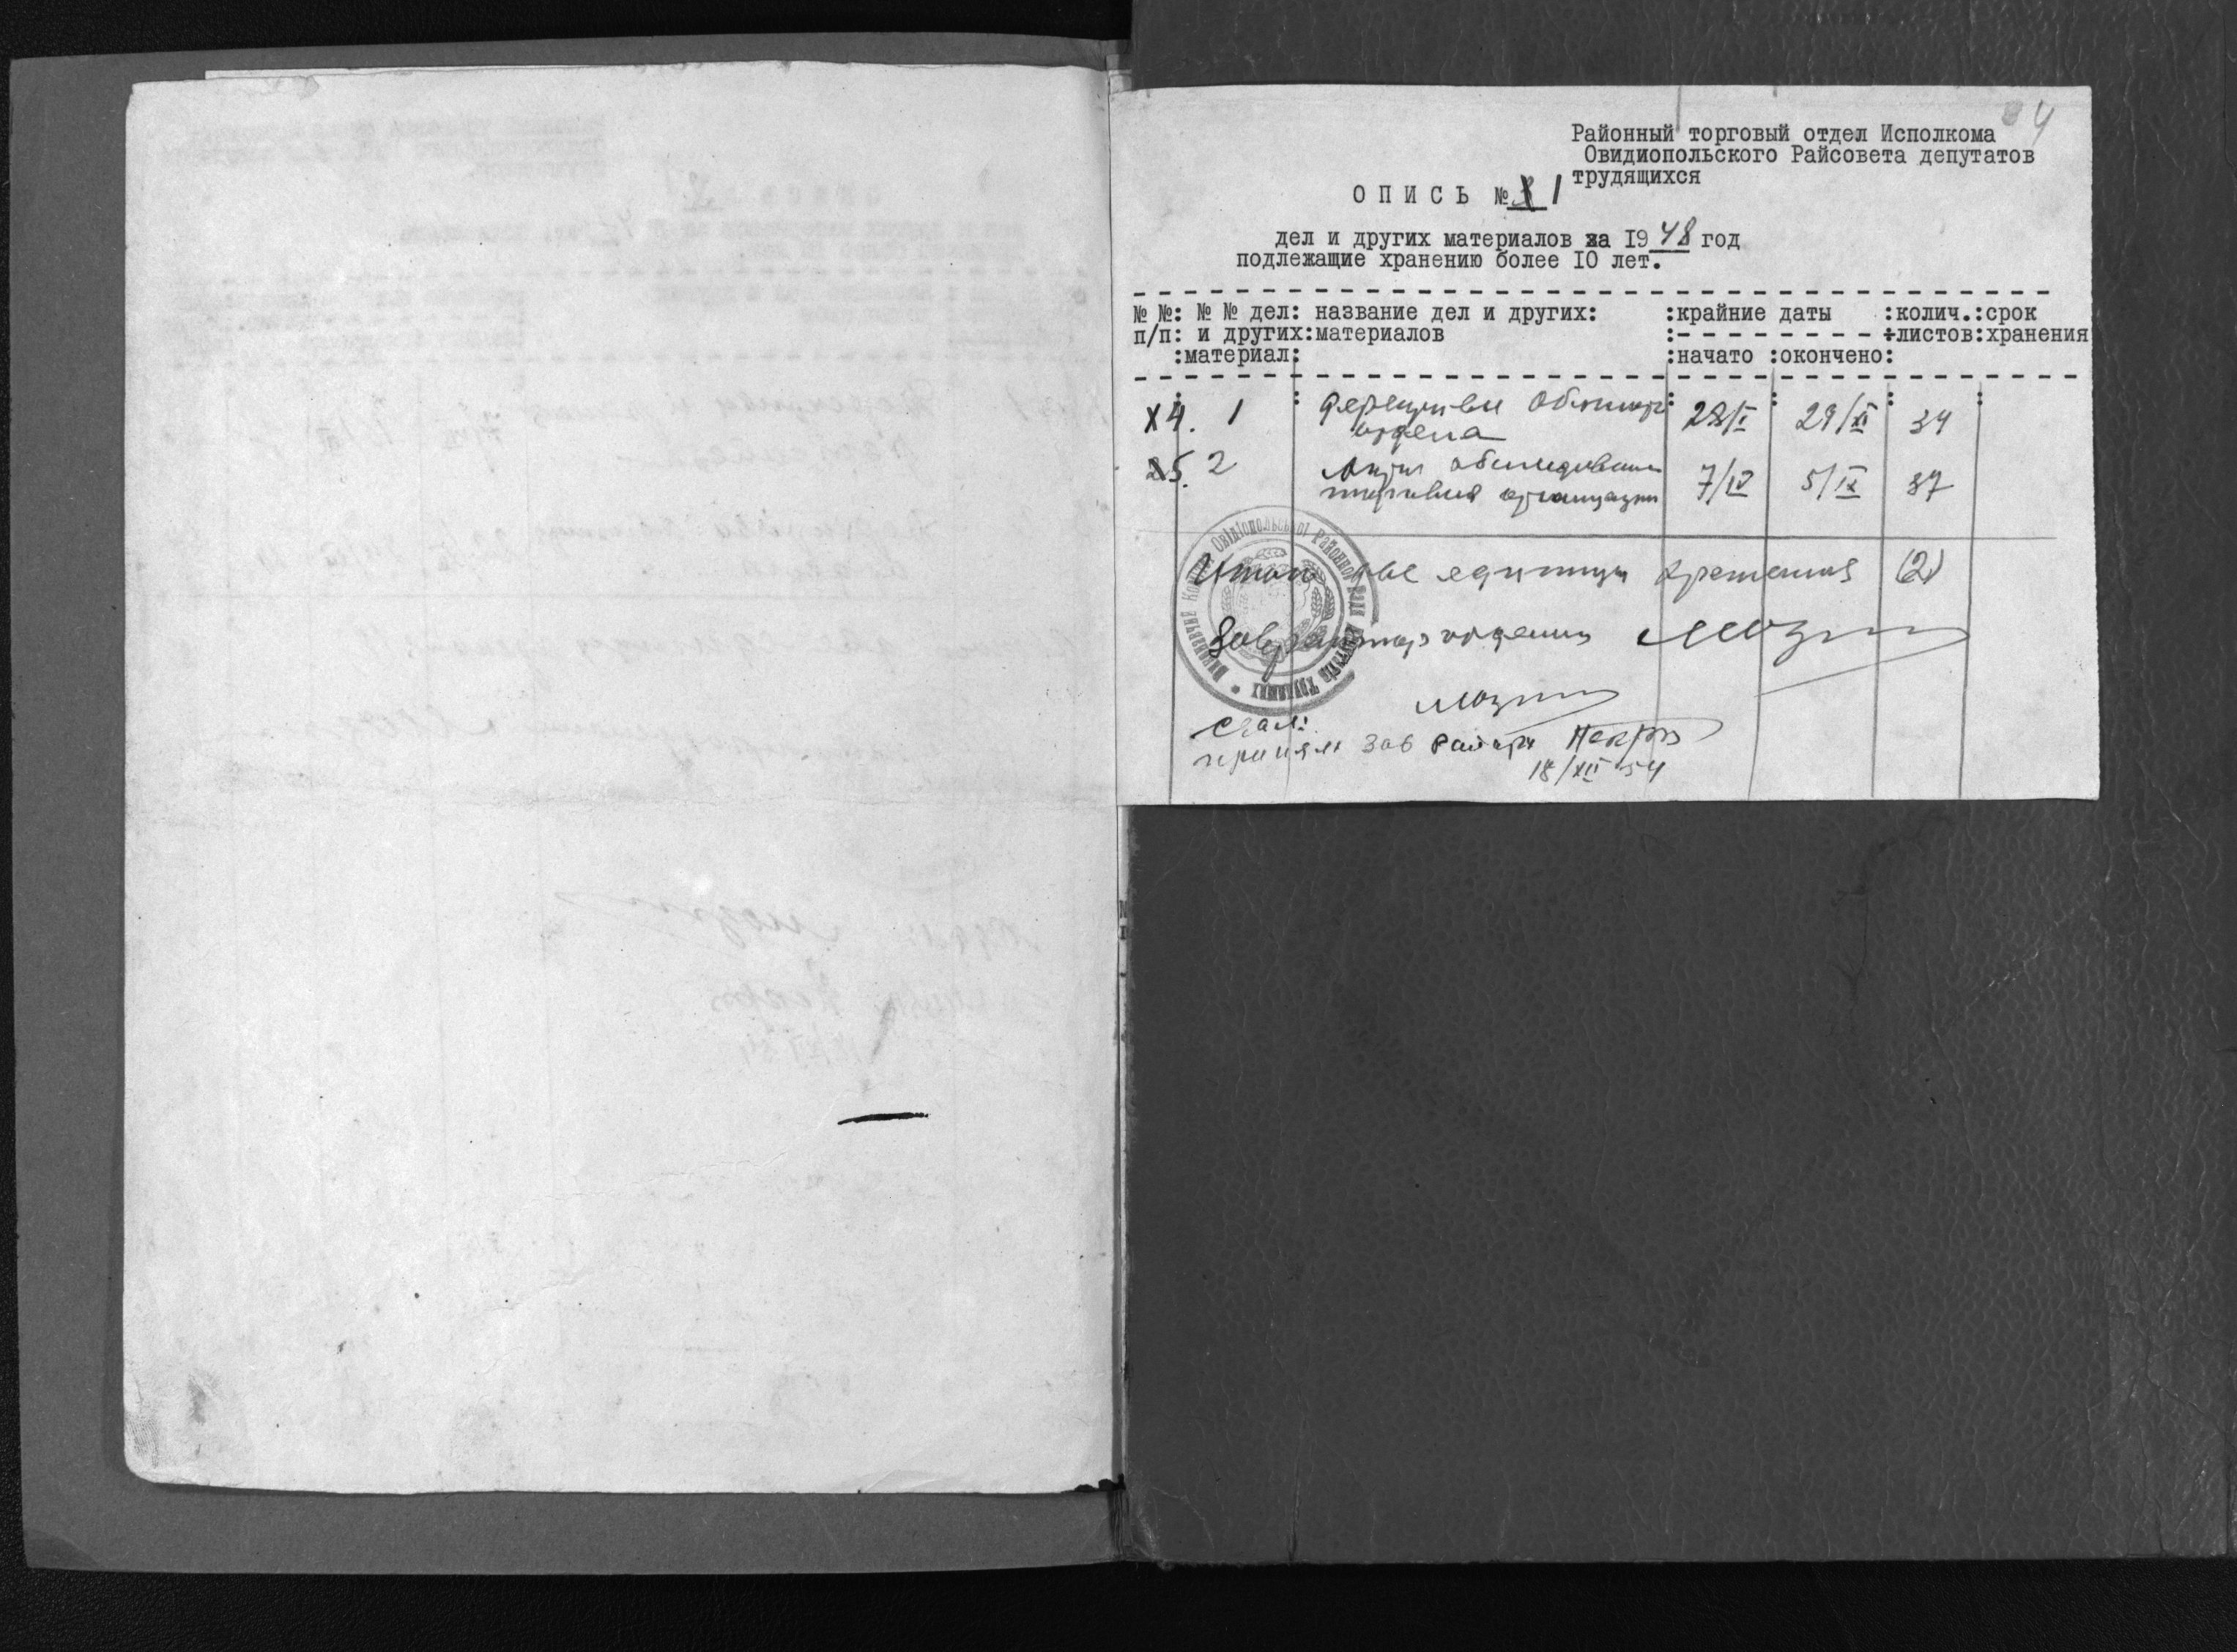 4
Районный торговый отдел Исполкома
Овидиопольского Райсовета депутатов
трудящихся
О П И С Ь № 1
дел и других материалов за 1948 год
подлежащие хранению более 10 лет.
№ №: № № дел: название дел и других: :крайние даты :колич.:срок
п/п: и других:материалов :листов:хранения
:материал: :начато :окончено:
4. 1 Директивы Облторг 28/I 29/XI 34
отдела
5. 2 Акты обследования 7/IV 5/IX 37
торговых организации
Итого две единицы хранения (2)
Зав райторготделом
Сдал:
принял Зав Райарх
18/XII 54
Виконавчий Комітет Овідіопольської Районної Ради Депутатів Трудящих